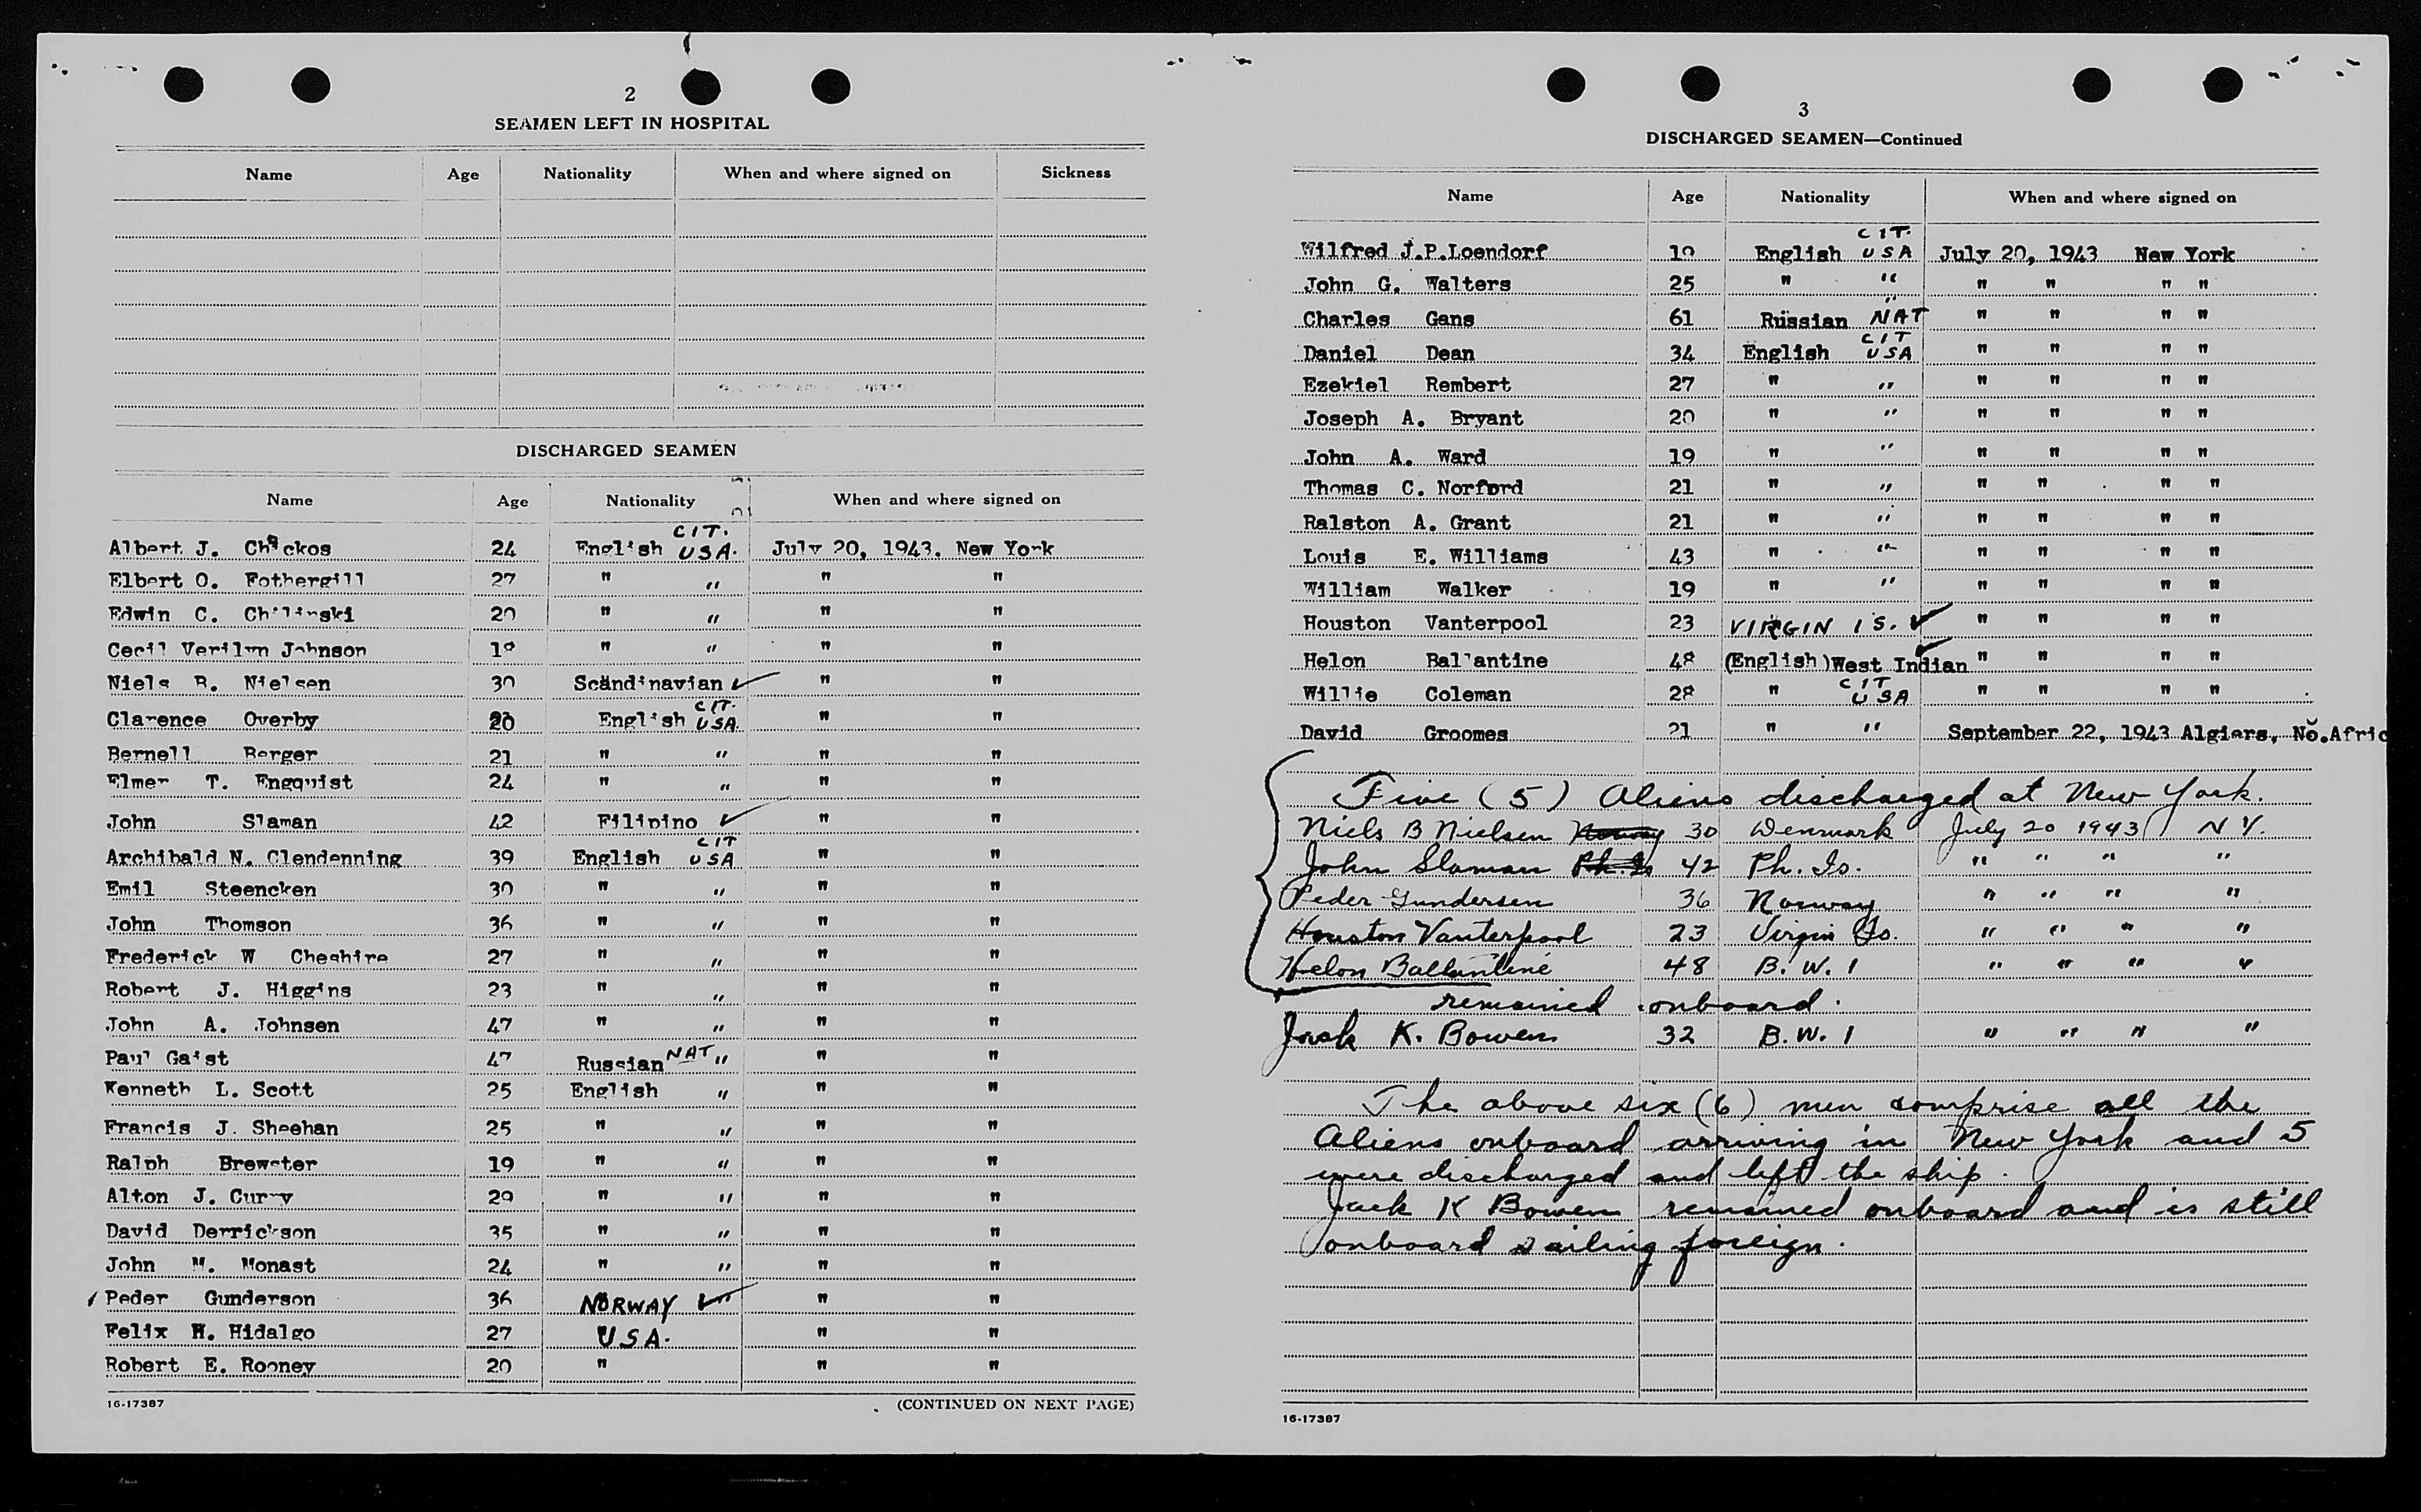 2
SEAMEN LEFT IN HOSPITAL
Name Age Nationality When and where signed on Sickness
DISCHARGED SEAMEN
Name Age Nationality When and where signed on
CIT.
Albert J. Chackos 24 English USA. July 20, 1943. New York
Elbert O. Fothergill 27 " " " "
Edwin C. Chilinski 20 " " " "
Cecil Verilyn Johnson " " " "
Niels B. Nielsen 30 Scandinavian ✓ " "
CIT.
Clarence Overby 20 English USA. " "
Bernell Berger 21 " " " "
Elmer T. Engquist 24 " " " "
John Slaman 42 Filipino ✓ " "
CIT
Archibald N. Clendenning 39 English USA " "
Emil Steencken 30 " " " "
John Thomson 36 " " " "
Frederick W Cheshire 27 " " " "
Robert J. Higgins 23 " " " "
John A. Johnsen 47 " " " "
Paul Gaist 47 Russian NAT " " "
Kenneth L. Scott 25 English " " "
Francis J. Sheehan 25 " " " "
Ralph Brewster 19 " " " "
Alton J. Curry 29 " " " "
David Derrickson 35 " " " "
John M. Monast 24 " " " "
Peder Gunderson 36 NORWAY ✓ " " "
Felix H. Hidalgo 27 USA. " "
Robert E. Rooney 20 " " "
16-17387 (CONTINUED ON NEXT PAGE)
3
DISCHARGED SEAMEN—Continued
Name Age Nationality When and where signed on
CIT.
Wilfred J.P.Loendorf 19 English USA July 20, 1943 New York
John G. Walters 25 " " " " " "
Charles Gans 61 Russian " NAT " " " "
CIT
Daniel Dean 34 English USA " " " "
Ezekiel Rembert 27 " " " " " "
Joseph A. Bryant 20 " " " " " "
John A. Ward 19 " " " " " "
Thomas C. Norford 21 " " " " " "
Ralston A. Grant 21 " " " " " "
Louis E. Williams 43 " " " " " "
William Walker 19 " " " " " "
Houston Vanterpool 23 VIRGIN IS. ✓ " " " "
Helon Ballantine 48 (English) West Indian ✓ " " " "
CIT
Willie Coleman 28 " USA " " " "
David Groomes 21 " " September 22, 1943 Algiers, No.Afric
Five (5) Aliens discharged at New York.
Niels B Nielsen Norway 30 Denmark July 20 1943 N Y.
John Slaman Ph. Is 42 Ph. Is. " " " "
Peder Gundersen 36 Norway " " " "
Houston Vanterpool 23 Virgin Is. " " " "
Helon Ballantine 48 B.W.I " " " "
remained onboard.
Jack K. Bowen 32 B.W.I " " " "
The above six (6) men comprise all the
Aliens onboard arriving in New York and 5
were discharged and left the ship.
Jack K Bowen remained onboard and is still
onboard sailing foreign.
16-17387